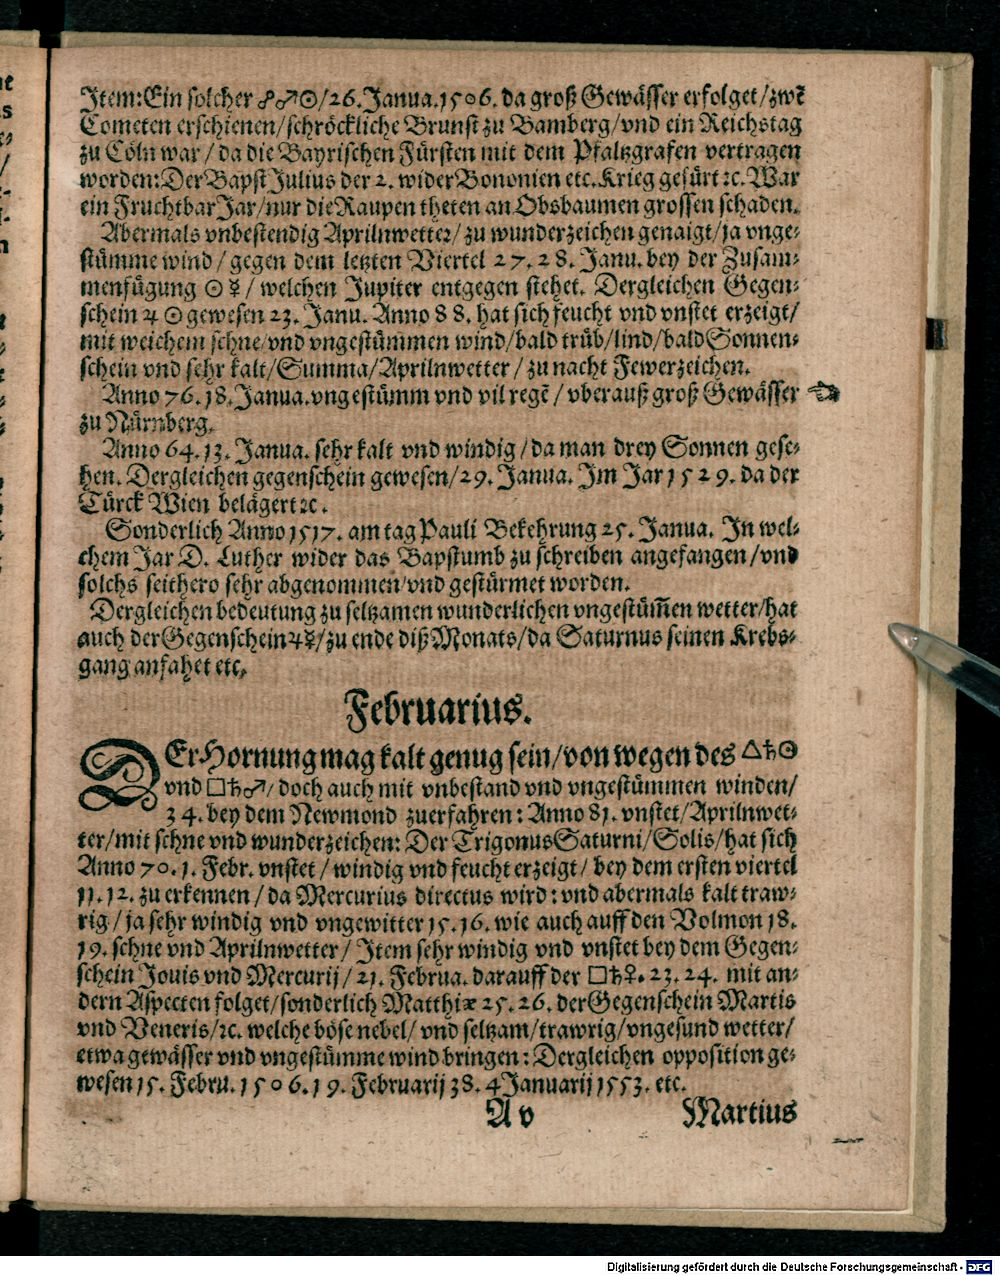 Item: Ein solcher ☍♂☉/26. Janua. 1506. da groß Gewässer erfolget/zwẽ
Cometen erschienen/schröckliche Brunst zu Bamberg/vnd ein Reichstag
zu Cöln war/da die Bayrischen Fürsten mit dem Pfaltzgrafen vertragen
worden: Der Bapst Julius der 2. wider Bononien etc. Krieg gefürt ꝛc. War
ein Fruchtbar Jar/nur die Raupen theten an Obsbaumen grossen schaden.
Abermals vnbestendig Aprilnwetter/zu wunderzeichen genaigt/ja vnge-
stümme wind/gegen dem letzten Viertel 27. 28. Janu. bey der Zusam-
menfügung ☉☿/welchen Jupiter entgegen stehet. Dergleichen Gegen-
schein ♃☉ gewesen 23. Janu. Anno 88. hat sich feucht vnd vnstet erzeigt/
mit weichem schne/vnd vngestümmen wind/bald trüb/lind/bald Sonnen-
schein vnd sehr kalt/Summa/Aprilnwetter/zu nacht Fewerzeichen.
Anno 76. 18. Janua. vngestümm vnd vil regẽ/vberauß groß Gewässer ☜
zu Nürnberg.
Anno 64. 13. Janua. sehr kalt vnd windig/da man drey Sonnen gese-
hen. Dergleichen gegenschein gewesen/29. Janua. Im Jar 1529. da der
Türck Wien belägert ꝛc.
Sonderlich Anno 1517. am tag Pauli Bekehrung 25. Janua. In wel-
chem Jar D. Luther wider das Bapstumb zu schreiben angefangen/vnd
solchs seithero sehr abgenommen/vnd gestürmet worden.
Dergleichen bedeutung zu seltzamen wunderlichen vngestüm̃en wetter/hat
auch der Gegenschein ♃☿/zu ende diß Monats/da Saturnus seinen Krebs-
gang anfahet etc.
Februarius.
DEr Hornung mag kalt genug sein/von wegen des △♄☉
vnd □♄♂/doch auch mit vnbestand vnd vngestümmen winden/
3 4. bey dem Newmond zuerfahren: Anno 81. vnstet/Aprilnwet-
ter/mit schne vnd wunderzeichen: Der Trigonus Saturni/Solis/hat sich
Anno 70. 1. Febr. vnstet/windig vnd feucht erzeigt/bey dem ersten viertel
11. 12. zu erkennen/da Mercurius directus wird: vnd abermals kalt traw-
rig/ja sehr windig vnd vngewitter 15. 16. wie auch auff den Volmon 18.
19. schne vnd Aprilnwetter/Item sehr windig vnd vnstet bey dem Gegen-
schein Jouis vnd Mercurij/21. Februa. darauff der □♄♀. 23. 24. mit an-
dern Aspecten folget/sonderlich Matthiæ 25. 26. der Gegenschein Martis
vnd Veneris/ꝛc. welche böse nebel/vnd seltzam/trawrig/vngesund wetter/
etwa gewässer vnd vngestümme wind bringen: Dergleichen opposition ge-
wesen 15. Febru. 1506. 19. Februarij 38. 4 Januarij 1553. etc.
A v Martius
Digitalisierung gefördert durch die Deutsche Forschungsgemeinschaft - DFG